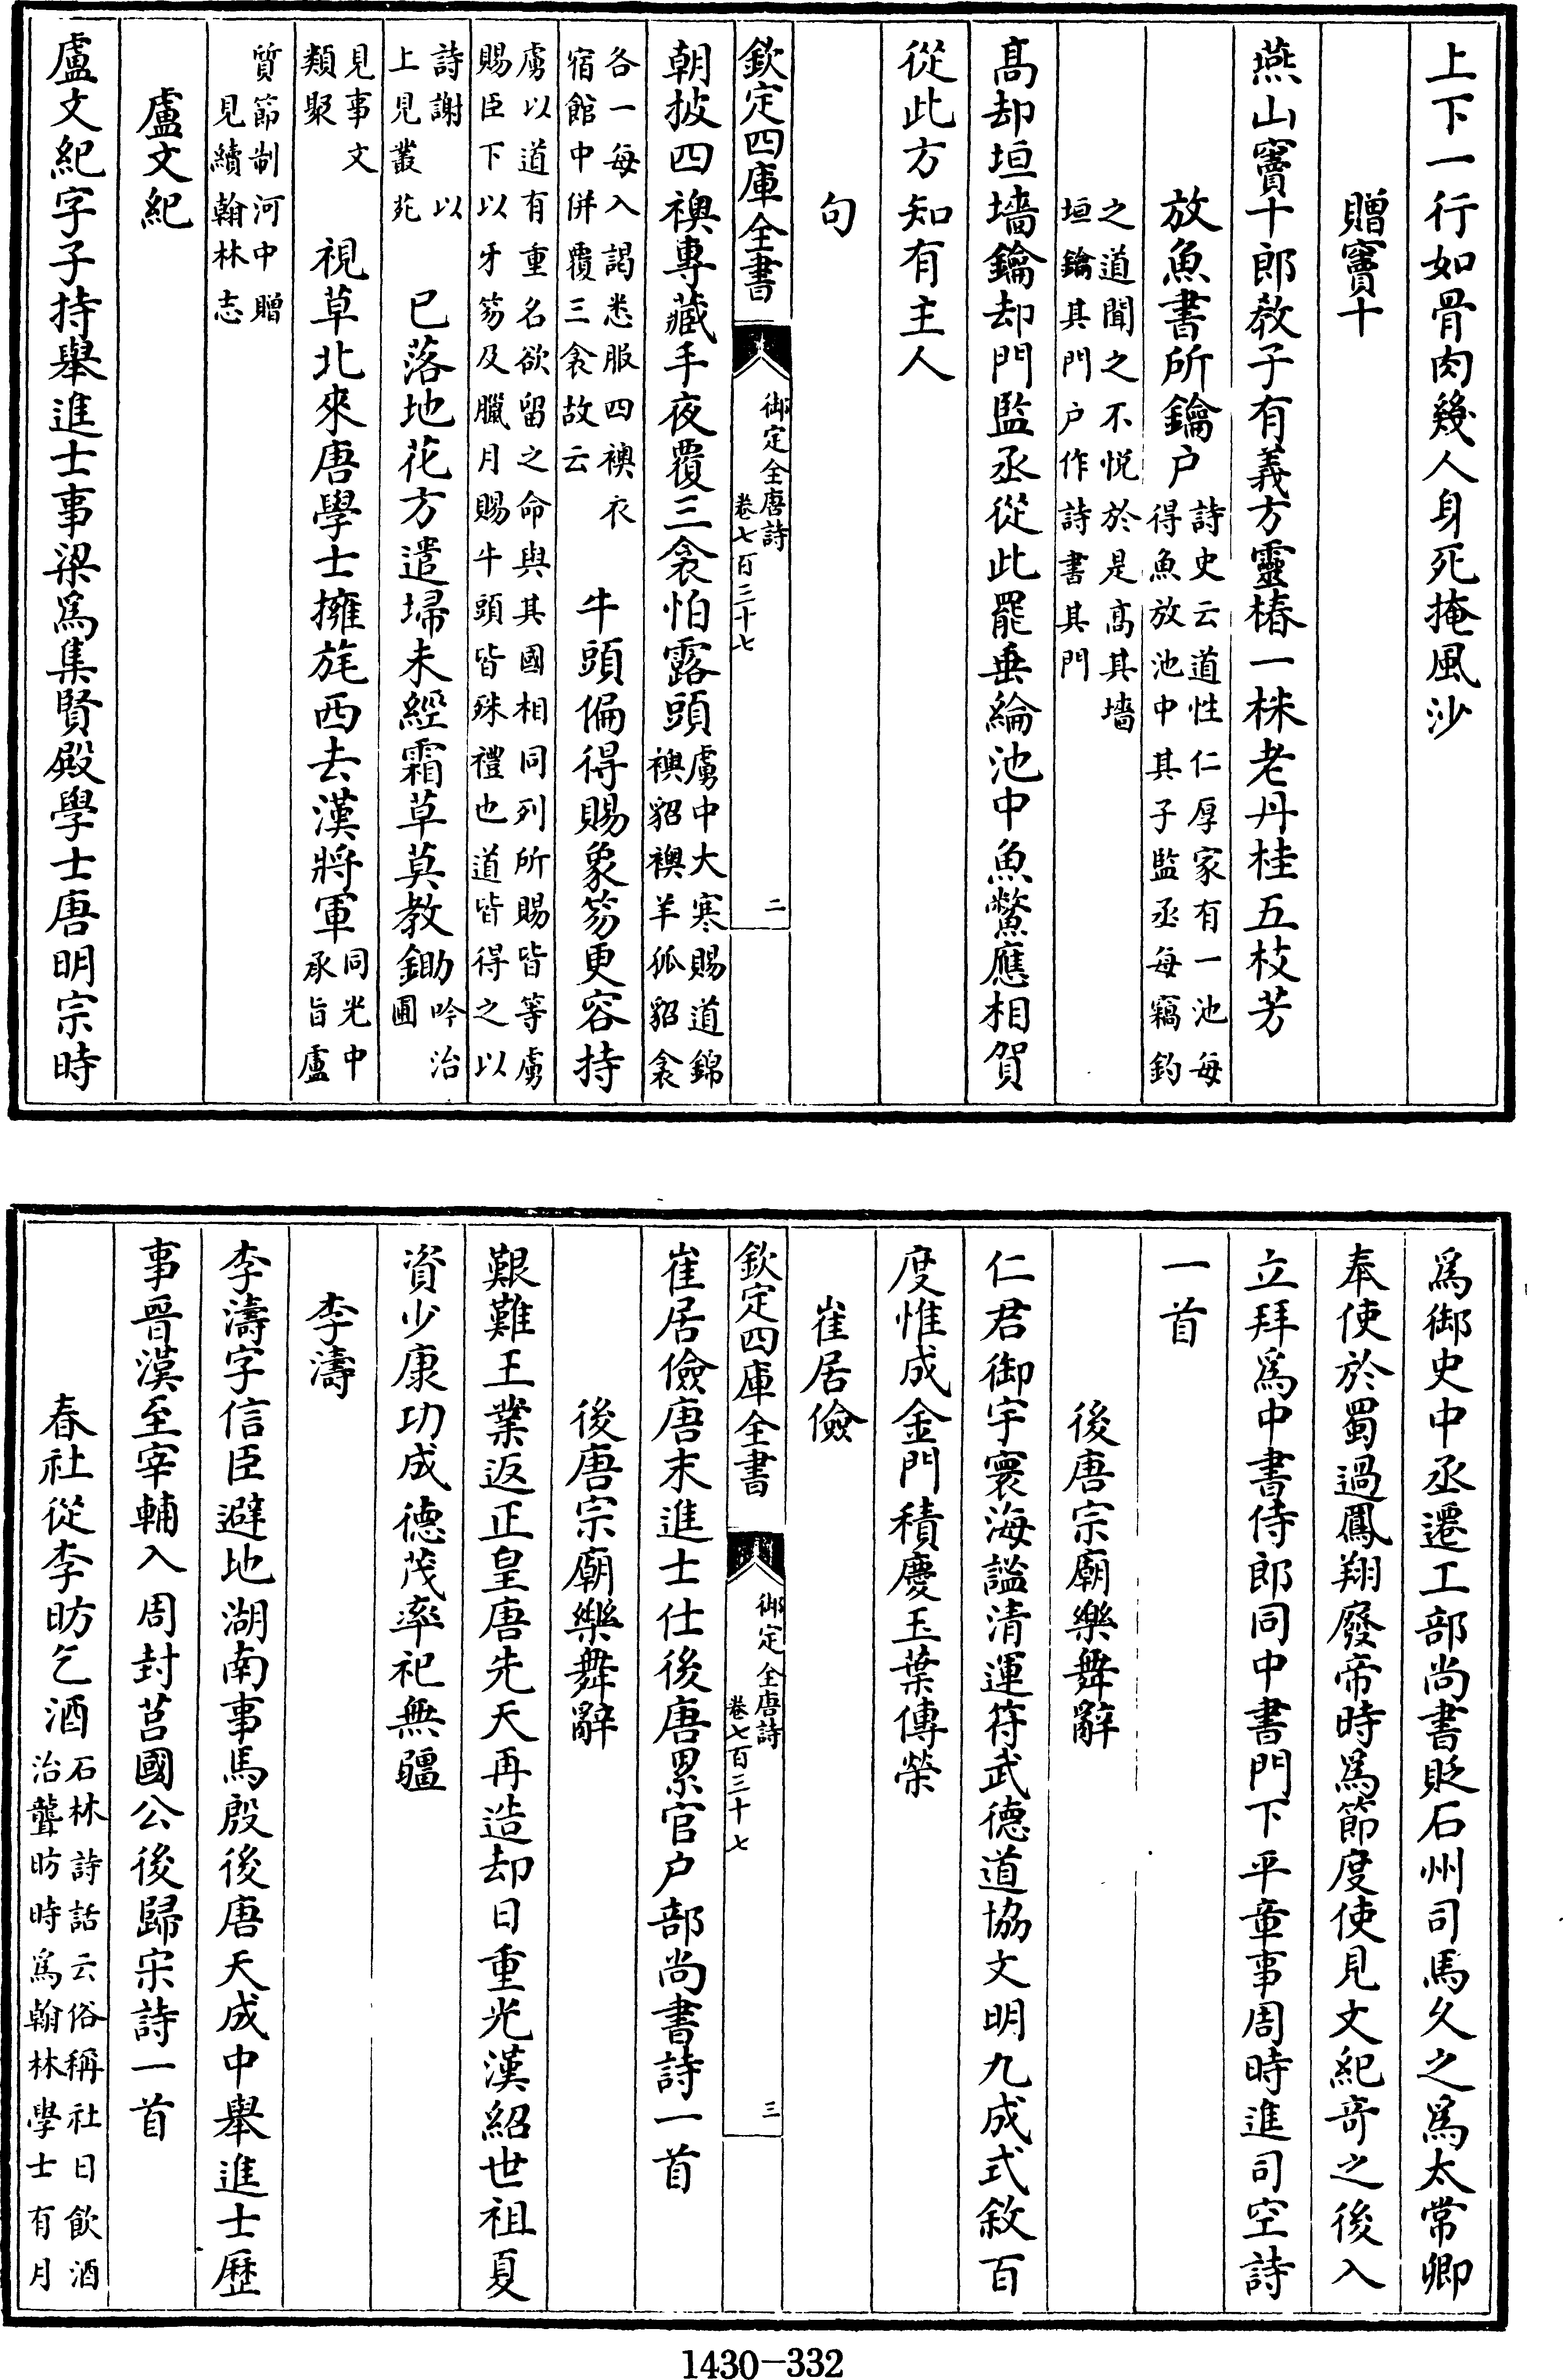 上下一行如骨肉幾人身死掩風沙
贈竇十
燕山竇十郎教子有義方靈椿一株老丹桂五枝芳
放魚書所鑰户詩史云道性仁厚家有一池每得魚放池中其子監丞每竊釣
之道聞之不悦於是高其墻垣鑰其門户作詩書其門
高却垣墻鑰却門監丞從此罷垂綸池中魚鱉應相賀
從此方知有主人
句
欽定四庫全書 御定全唐詩 卷七百三十七 二
朝披四襖專藏手夜覆三衾怕露頭虜中大寒賜道錦襖貂襖羊狐貂衾
各一每入謁悉服四襖衣宿館中併覆三衾故云 牛頭偏得賜象笏更容持
虜以道有重名欲留之命與其國相同列所賜皆等虜賜臣下以牙笏及臘月賜牛頭皆殊禮也道皆得之以
詩謝 以上見叢苑 已落地花方遣埽未經霜草莫教鋤吟治圃
見事文類聚 視草北來唐學士擁旄西去漢將軍同光中承旨盧
質節制河中贈見續翰林志
盧文紀
盧文紀字子持舉進士事梁爲集賢殿學士唐明宗時
爲御史中丞遷工部尚書貶石州司馬久之爲太常卿
奉使於蜀過鳳翔廢帝時爲節度使見文紀奇之後入
立拜爲中書侍郎同中書門下平章事周時進司空詩
一首
後唐宗廟樂舞辭
仁君御宇寰海謐清運符武德道協文明九成式敘百
度惟成金門積慶玉葉傳榮
崔居儉
欽定四庫全書 御定全唐詩 卷七百三十七 三
崔居儉唐末進士仕後唐累官户部尚書詩一首
後唐宗廟樂舞辭
艱難王業返正皇唐先天再造却日重光漢紹世祖夏
資少康功成德茂率祀無疆
李濤
李濤字信臣避地湖南事馬殷後唐天成中舉進士歷
事晉漢至宰輔入周封莒國公後歸宋詩一首
春社從李昉乞酒石林詩話云俗稱社日飲酒治聾昉時爲翰林學士有月
1430-332